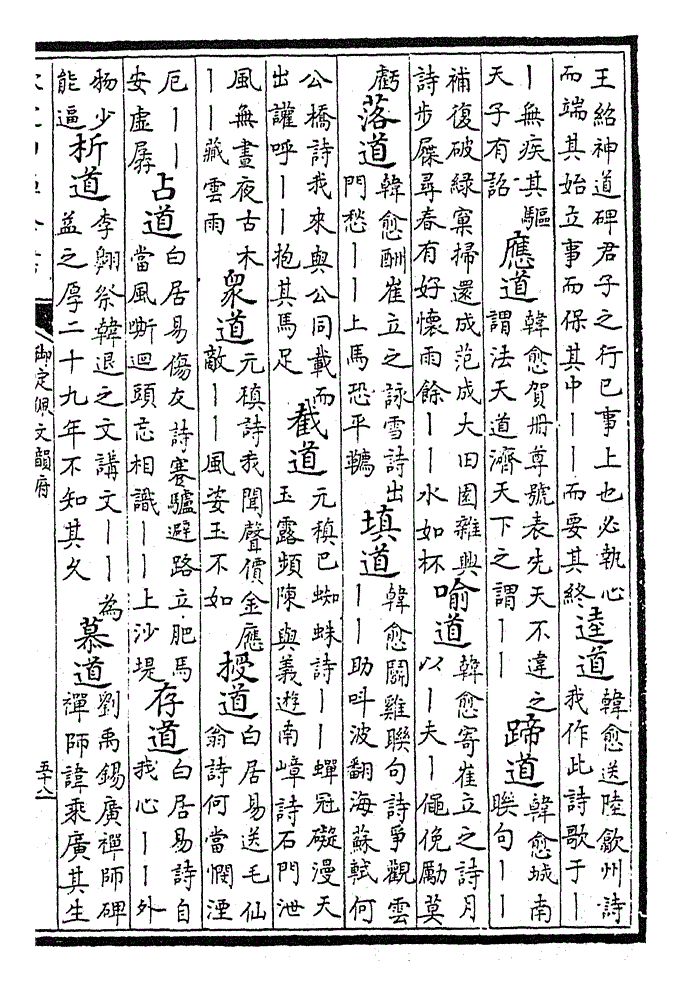 王紹神道碑君子之行已事上也必執心
而端其始立事而保其中丨丨而要其終
逵道
韓愈送陸歙州詩
我作此詩歌于丨
丨無疾其驅
天子有詔
應道
韓愈賀冊尊號表先天不違之
謂法天道濟天下之謂丨丨
蹄道
韓愈城南
聨句丨丨
補復破緑窠掃還成范成大田園雜興
詩步屧尋春有好懷雨餘丨丨水如杯
喻道
韓愈寄崔立之詩月
以丨夫丨僶俛勵莫
虧
落道
韓愈酬崔立之詠雪詩出
門愁丨丨上馬恐平鞴
填道
韓愈鬬雞聨句詩爭觀雲
丨丨助呌波翻海蘇軾何
公橋詩我來與公同載而
出讙呼丨丨抱其馬足
截道
元稹巴蜘蛛詩丨丨蟬冠礙漫天
玉露頻陳與義遊南嶂詩石門泄
風無晝夜古木
丨丨藏雲雨
衆道
元稹詩我聞聲價金應
敵丨丨風姿玉不如
授道
白居易送毛仙
翁詩何當憫湮
厄丨丨
安虚孱
占道
白居易傷友詩蹇驢避路立肥馬
當風嘶迴頭忘相識丨丨上沙堤
存道
白居易詩自
我心丨丨外
物少
能逼
析道
李翺祭韓退之文講文丨丨為
益之厚二十九年不知其久
慕道
劉禹錫廣禪師碑
禪師諱乘廣其生
御定佩文韻府
五十八